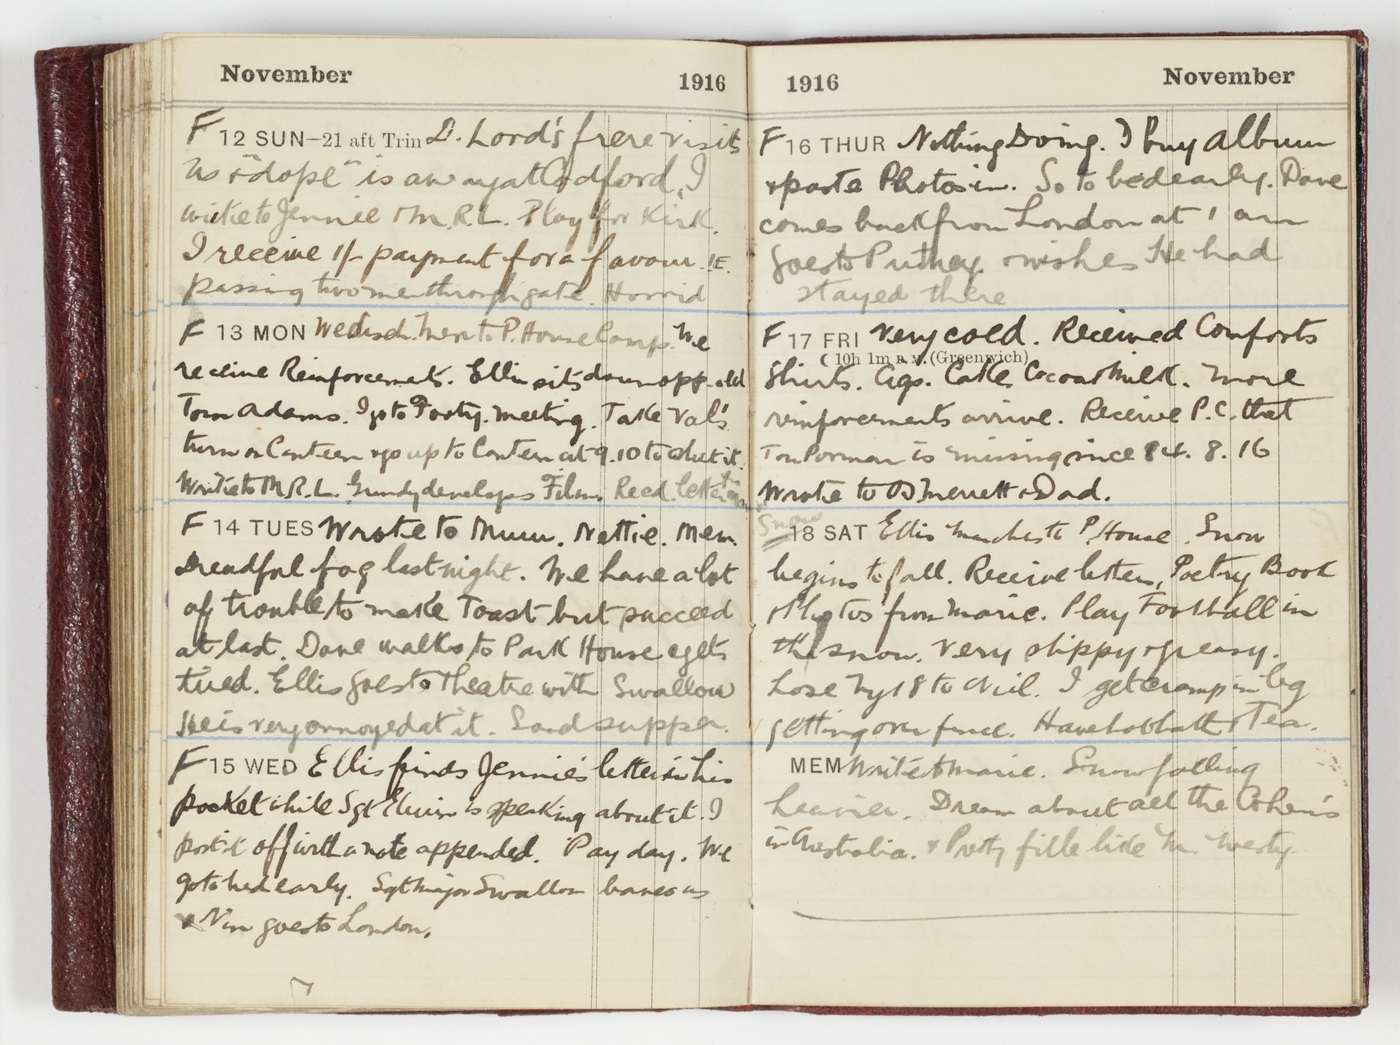 November 1916
F 12 SUN—21 aft Trin D. Lord's frere visits
us & "dope" is away at Codford. I
write to Jennie & M.R.L. Play for Kirk.
I receive 1/- payment for a favour. I.E.
passing two men through gate. Horrid
F 13 MON Wedsd. went to P. House Camp. We
receive Reinforcements. Ellis sits down opp. old
Tom Adams. I go to Footy. meeting. Take Val's
turn on Canteen & go up to Canteen at 9.10 to shut it.
Write to M.R.L. Grundy develops Film. Recd. letter
F 14 TUES Wrote to Mum. Nettie. Mem.
Dreadful fog last night. We have a lot
of trouble to make Toast but succeed
at last. Dave walks to Park House & gets
tired. Ellis goes to Theatre with Swallow
He is very annoyed at it. Good supper.
F 15 WED Ellis finds Jennie's letter in his
pocket while Sgt is speaking about it. I
post it off with a note appended. Pay day. We
go to bed early. Sgt major Swallow leaves us
& Nin goes to London.
1916 November
F 16 THUR Nothing Doing. I buy album
& paste Photos in. So to bed early. Dave
comes back from London at 1 am
goes to Putney & wishes He had
stayed there
F 17 FRI Very cold. Received Comforts
( 10h 1m p.m. (Greenwich)
Shirts. Cigs. Cake. Cocoa & Milk. More
reinforcements arrive. Receive P.C. that
Tom Porman is missing since 4. 8. 16
Wrote to & Dad.
Snow
18 SAT Ellis marches to P. House. Snow
begins to fall. Receive letter, Poetry Book
& Photos from Marie. Play Football in
the snow. Very slippy & greasy.
Lose by 18 to Nil. I get cramp in leg
getting over fence. Have hot bath & Tea.
MEM Write to Marie. Snow falling
heavier. Dream about all the Cohen's
in Australia. & Pretty fille like